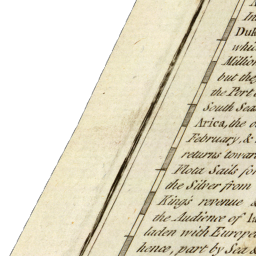 In
Duk
whic
Million
but they
the Port
South Sea
Arica, the
February, &
returns towar
Flota Sails for
the Silver from
King's revenue &
the Audience of
laden with Europe
hence, part by Sea &